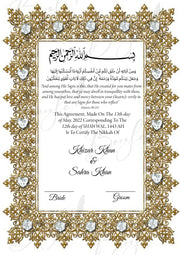 بِسْمِ اللَّهِ الرَّحْمَٰنِ الرَّحِيمِ
وَمِنْ آيَاتِهِ أَنْ خَلَقَ لَكُم مِّنْ أَنفُسِكُمْ أَزْوَاجًا لِّتَسْكُنُوا إِلَيْهَا
"And among His Signs is this, that He created for you mates from
among yourselves, that ye may dwell in tranquillity with them,
and He has put love and mercy between your (hearts): verily in
that are Signs for those who reflect"
This Agreement, Made On The 13th day
of May, 2022 Corresponding To The
12th day of SHAWWAL, 1443 AH
Is To Certify The Nikkah Of
Khizar Khan
&
Sahra Khan
Bride
Groom